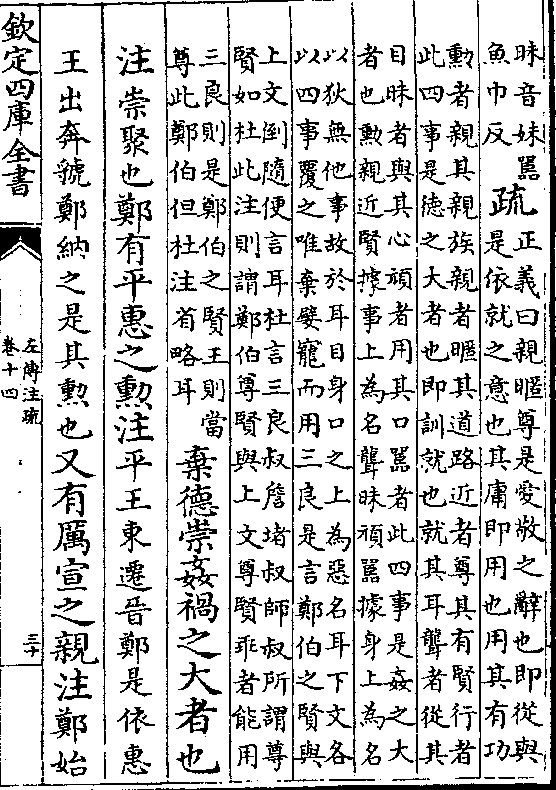 昧音妹嚚
魚巾反
疏
正義曰親暱尊是愛敬之辭也即從與
是依就之意也其庸即用也用其有功
勲者親其親族親者暱其道路近者尊其有賢行者
此四事是德之大者也即訓就也就其耳聾者從其
目昧者與其心頑者用其口嚚者此四事是姦之大
者也勲親近賢據事上為名聾昧頑嚚據身上為名
以狄無他事故於耳目身口之上為惡名耳下文各
以四事覆之唯棄嬖寵而用三良是言鄭伯之賢與
上文倒隨便言耳杜言三良叔詹堵叔師叔所謂尊
賢如杜此注則謂鄭伯尊賢與上文尊賢乖者能用
三良則是鄭伯之賢王則當
尊此鄭伯但杜注省略耳
棄德崇姦禍之大者也
注崇聚也鄭有平惠之勲注平王東遷晉鄭是依惠
王出奔虢鄭納之是其勲也又有厲宣之親注鄭始
欽定四庫全書
左傳注疏
卷十四
三十